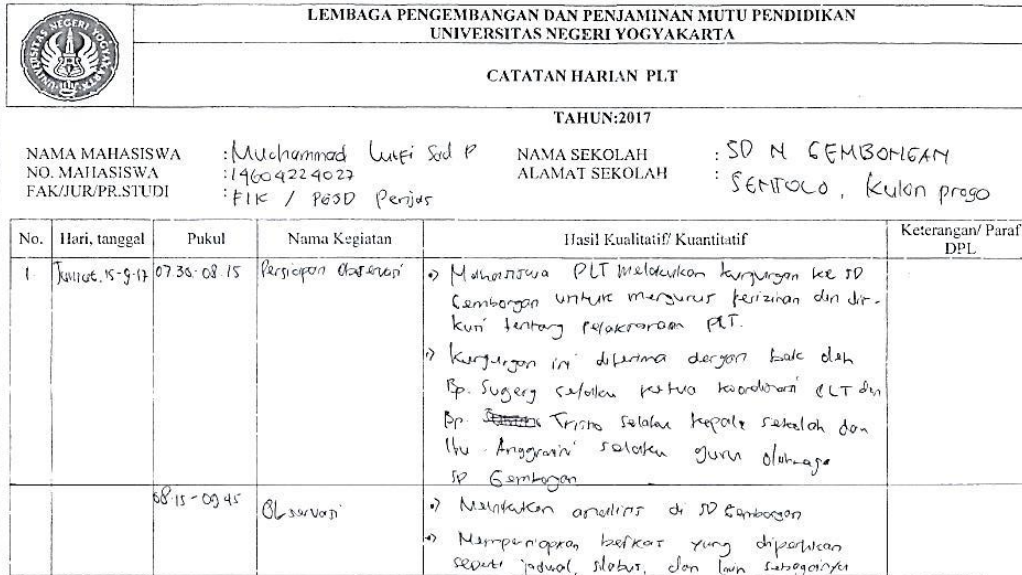 LEMBAGA PENGEMBANGAN DAN PENJAMINAN MUTU PENDIDIKAN
UNIVERSITAS NEGERI YOGYAKARTA
CATATAN HARIAN PLT
TAHUN:2017
NAMA MAHASISWA : Muchammad Lutfi Said P
NO. MAHASISWA : 14604224027
FAK/JUR/PR.STUDI : FIK / PGSD Penjas
NAMA SEKOLAH : SD N GEMBONGAN
ALAMAT SEKOLAH : SENTOLO, Kulon progo
No. Hari, tanggal Pukul Nama Kegiatan Hasil Kualitatif/ Kuantitatif Keterangan/ Paraf DPL
1. Jumat, 15-9-17 07.30-08.15 Persiapan Observasi
Mahasiswa PLT melakukan kunjungan ke SD
Gembongan untuk mengurus perizinan dan dis-
kusi tentang pelaksanaan PLT.
Kunjungan ini diterima dengan baik oleh
Bp. Sugeng selaku ketua koordinasi PLT dan
Bp. Tristo selaku kepala sekolah dan
Ibu Anggraini selaku guru olahraga
SD Gembongan
08.15-09.45 Observasi
Melakukan analisis di SD Gembongan
Mempersiapkan berkas yang diperlukan
seperti jadwal, silabus, dan lain sebagainya